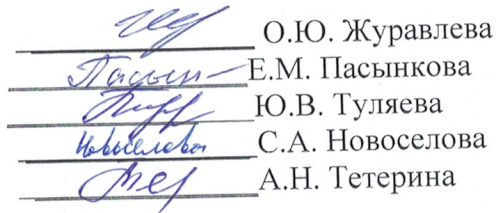 О.Ю. Журавлева
Пасын Е.М. Пасынкова
Ю.В. Туляева
Новоселова С.А. Новоселова
А.Н. Тетерина